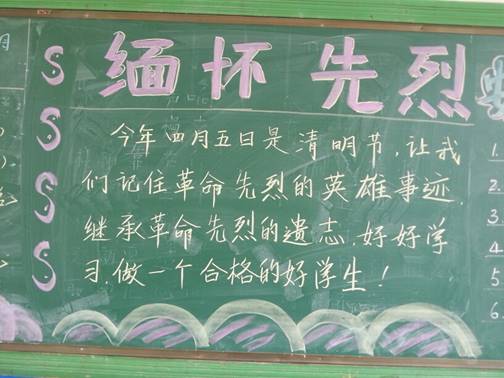 缅怀先烈
今年四月五日是清明节,让我
们记住革命先烈的英雄事迹,
继承革命先烈的遗志,好好学
习,做一个合格的好学生!
月
1.
2.
3.
4.
5.
6.